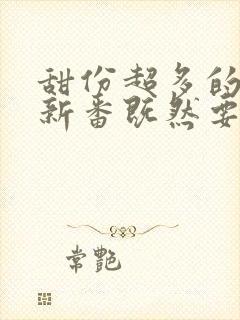 甜份超多的
新番既然要
常艷